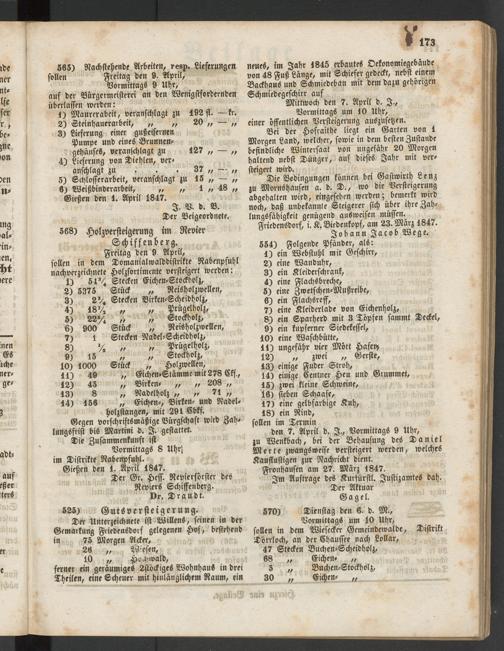 173
565) Nachstehende Arbeiten, resp. Lieferungen
sollen Freitag den 9. April,
Vormittags 9 Uhr,
auf der Bürgermeisterei an den Wenigstfordernden
überlassen werden:
1) Maurerarbeit, veranschlagt zu 192 fl. — kr.
2) Steinhauerarbeit, „ „ 20 „ — „
3) Lieferung einer gußeisernen
Pumpe und eines Brunnen-
gehäuses, veranschlagt zu 127 „ — „
4) Lieferung von Diehlen, ver-
anschlagt zu . 37 „ — „
5) Schlosserarbeit, veranschlagt zu 15 „ — „
6) Weißbinderarbeit, „ „ 1 „ 48 „
Gießen den 1. April 1847.
J. V. d. B.
Der Beigeordnete.
568) Holzversteigerung im Revier
Schiffenberg.
Freitag den 9 April,
sollen in dem Domanialwalddistrikte Rabenpfuhl
nachverzeichnete Holzsortimente versteigert werden:
1) 51¾ Stecken Eichen-Stockholz,
2) 5375 Stück „ Reisholzwellen,
3) 2¾ Stecken Birken-Scheidholz,
4) 18½ „ „ Prügelholz,
5) 22¾ „ „ Stockholz,
6) 900 Stück „ Reisholzwellen,
7) 1 Stecken Nadel-Scheidholz,
8) ½ „ „ Prügelholz,
9) 15 „ „ Stockholz,
10) 1000 Stück „ Holzwellen,
11) 49 „ Eichen-Stämme mit 278 Cfß.,
12) 45 „ Birken- „ „ 208 „
13) 8 „ Nadelholz „ „ 71 „
14) 156 „ Eichen-, Birken- und Nadel-
holzstangen, mit 291 Cbkf.
Gegen vorschriftsmäßige Bürgschaft wird Zah-
lungsfrist bis Martini d. J. gestattet.
Die Zusammenkunft ist
Vormittags 8 Uhr
im Distrikte Rabenpfuhl.
Gießen den 1. April 1847.
Der Gr. Hess. Revierförster des
Reviers Schiffenberg.
Dr. Draudt.
525) Gutsversteigerung.
Der Unterzeichnete ist Willens, seinen in der
Gemarkung Friedensdorf gelegenen Hof, bestehend
in 75 Morgen Acker,
26 „ Wiesen,
10 „ Hochwald,
ferner ein geräumiges 2stöckiges Wohnhaus in drei
Theilen, eine Scheuer mit hinlänglichem Raum, ein
neues, im Jahr 1845 erbautes Oekonomiegebäude
von 48 Fuß Länge, mit Schiefer gedeckt, nebst einem
Backhaus und Schmiedebau mit dem dazu gehörigen
Schmiedegeschirr auf
Mittwoch den 7. April d. J.,
Vormittags um 10 Uhr,
einer öffentlichen Versteigerung auszusetzen.
Bei der Hofraithe liegt ein Garten von 1
Morgen Land, welcher, sowie in dem besten Zustande
befindliche Wintersaat von ungefähr 20 Morgen
haltend nebst Dünger, auf dieses Jahr mit ver-
steigert wird.
Die Bedingungen können bei Gastwirth Lenz
zu Mornshausen a. d. D., wo die Versteigerung
abgehalten wird, eingesehen werden; bemerkt wird
noch, daß unbekannte Steigerer sich über ihre Zah-
lungsfähigkeit genügend ausweisen müssen.
Friedensdorf, i. K. Biedenkopf, am 23. März 1847.
Johann Jacob Wege.
554) Folgende Pfänder, als:
1) ein Webstuhl mit Geschirr,
2) eine Wanduhr,
3) ein Kleiderschrank,
4) eine Flachsbreche,
5) eine Zwetschen-Mußreibe,
6) ein Flachsreff,
7) eine Kleiderlade von Eichenholz,
8) ein Sparherd mit 3 Töpfen sammt Deckel,
9) ein kupferner Siedekessel,
10) eine Waschbütte,
11) ungefähr vier Mött Hafer,
12) „ zwei „ Gerste,
13) einige Fuder Stroh,
14) einige Centner Heu und Grummet,
15) zwei kleine Schweine,
16) sieben Schaafe,
17) eine gelbfarbige Kuh,
18) ein Rind,
sollen im Termin
den 7. April d. J., Vormittags 9 Uhr,
zu Wenkbach, bei der Behausung des Daniel
Merte zwangsweise versteigert werden, welches
Kauflustigen zur Nachricht dient.
Fronhausen am 27. März 1847.
Im Auftrage des Kurfürstl. Justizamts dah.
Der Aktuar
Gagel.
570) Dienstag den 6. d. M.,
Vormittags um 10 Uhr,
sollen in dem Wiesecker Gemeindewalde, Distrikt
Dörrloch, an der Chaussee nach Lollar,
47 Stecken Buchen-Scheidholz,
68 „ Eichen- „
3 „ Buchen-Stockholz,
30 „ Eichen- „